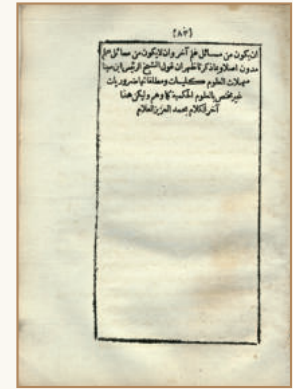 (٨٣)
ان يكون من مسائل علم آخر وان لا يكون من مسائل علم
مدون اصلا وبما ذكرنا ظهر ان قول الشيخ الرئيس ابن سينا
مهملات العلوم كليات ومطلقاتها ضروريات
غير مختص بالعلوم الحكمية كما وهم وليكن هذا
آخر الكلام بحمد العزيز العلام